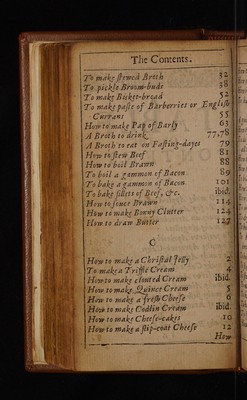 The Contents.
To make stewed Broth 32
To pickle Broom-buds 38
To make Bisket-bread 52
To make paste of Barberries or English
Currans 55
How to make Pap of Barly 63
A Broth to drink 77,78
A Broth to eat on Fasting-dayes 79
How to stew Beef 81
How to boil Brawn 88
To boil a gammon of Bacon 89
To bake a gammon of Bacon 101
To bake fillets of Beef, &c. ibid.
How to souce Brawn 114
How to make Bonny Clutter 124
How to draw Butter 127
C
How to make a Christal Jelly 2
To make a Triffle Cream 4
How to make clouted Cream ibid.
How to make Quince Cream 5
How to make a fresh Cheese 6
How to make Codlin Cream ibid.
How to make Cheese-cakes 10
How to make a slip-coat Cheese 12
How